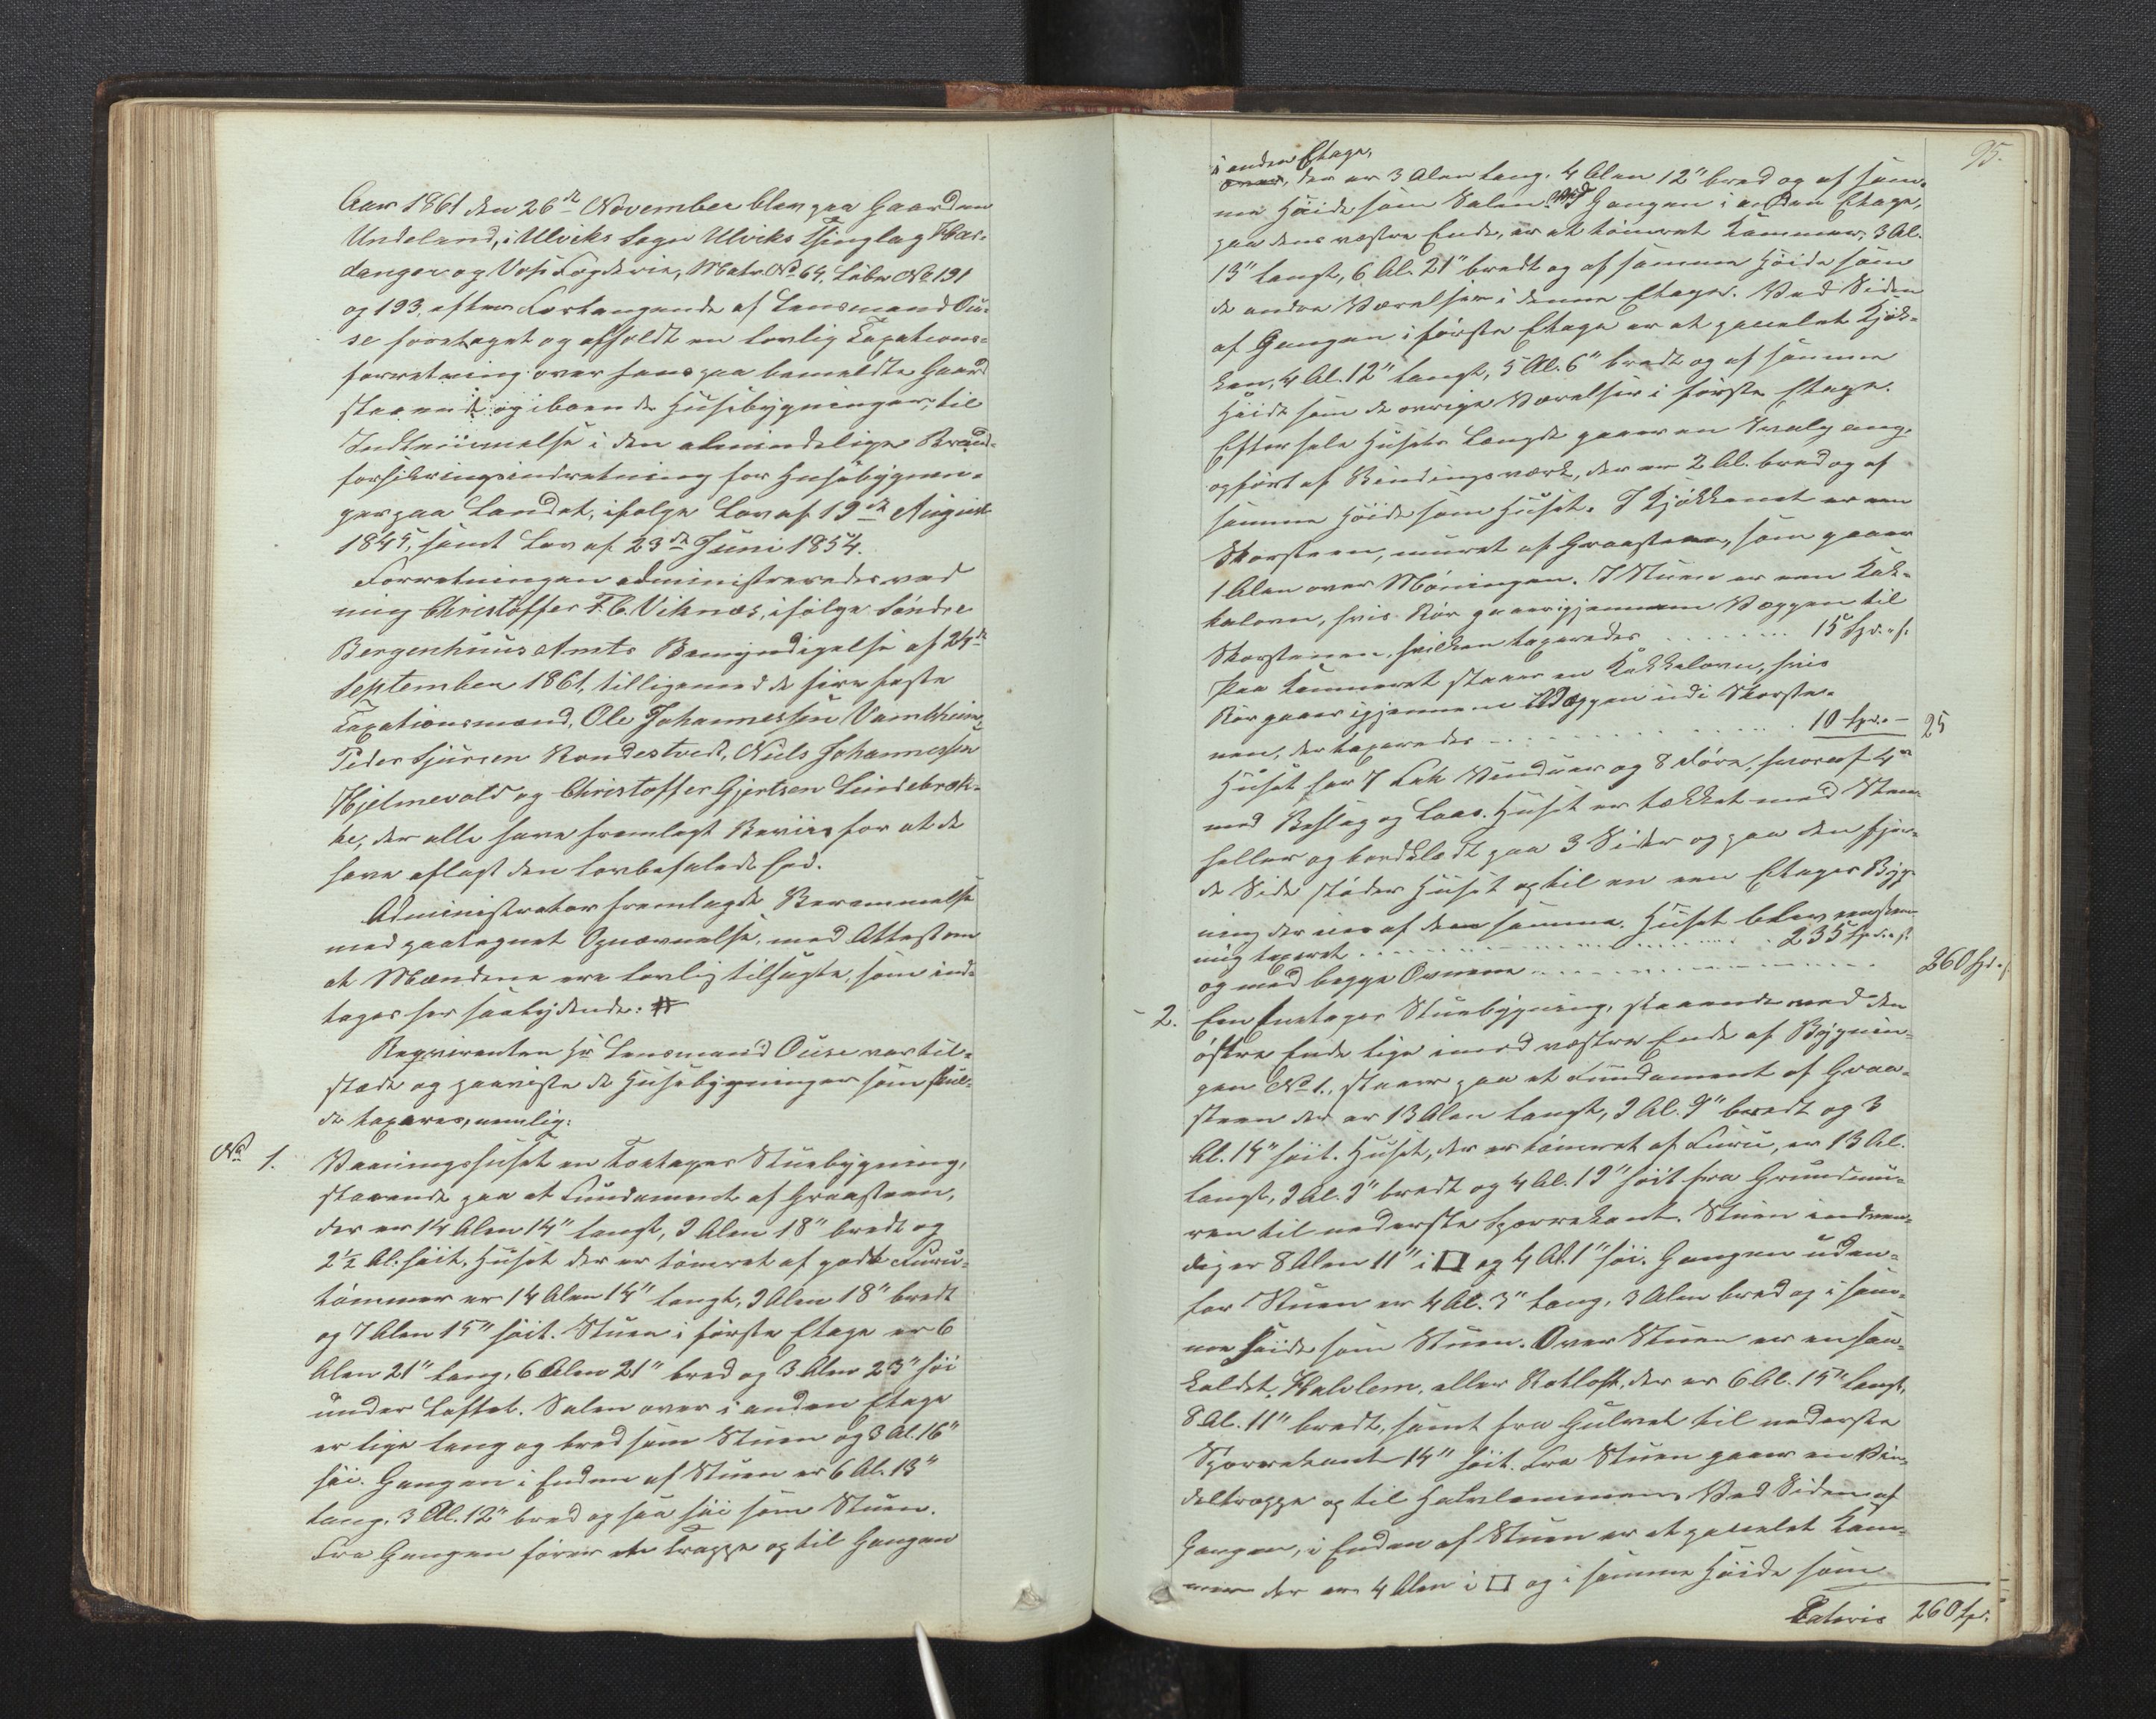 Aar 1861 den 26de November blev paa Gaarden
Undeland, i Ulviks Sogn Ulviks Thinglag Har-
danger og Voss Fogderie, Matr. No 64, Løbe No 191
og 193, efter Forlangende af Lensmand Ou-
se foretaget og afholdt en lovlig Taxations-
forretning over hans paa bemeldte Gaard
staaende og iboende Huusbygninger, til
Indlemmelse i den almindelige Brand-
forsikringsindretning for Huusbygnin-
ger paa Landet, ifølge Lov af 19de August
1845, samt Lov af 23de Juni 1854.
Forretningen administreredes ved
mig Christoffer F. C. Viknæs, ifølge Søndre
Bergenhuus Amts Bemyndigelse af 24de
September 1861, tilligemed de fire faste
Taxationsmænd, Ole Johannessen Vambheim,
Peder Sjursen Rondestvedt, Niels Johannessen
Hjelmevold og Christoffer Gjertsen Lindebræk-
ke, der alle have fremlagt Beviis for at de
have aflagt den lovbefalede Eed.
Administrator fremlagde Berammelse
med paategnet Opnævnelse, med Attest om
at Mændene ere lovlig tilsagte, som ind-
tages her saalydende: #
Reqvirenten Hr Lensmand Ouse var til-
stæde og paaviste de Huusbygninger som skul-
de taxeres, nemlig:
No 1. Vaaningshuset en Toetages Stuebygning,
staaende paa et Fundament af Graasteen,
der er 14 Alen 14" langt, 9 Alen 18" bredt og
2½ Al. høit. Huset der er tømret af godt Furu-
tømmer er 14 Alen 14" langt, 9 Alen 18" bredt
og 7 Alen 15" høit. Stuen i første Etage er 6
Alen 21" lang, 6 Alen 21" bred og 3 Alen 23" høi
under Loftet. Salen over i anden Etage
er lige lang og bred som Stuen og 3 Al. 16"
høi. Gangen i Enden af Stuen er 6 Al. 13"
lang, 3 Al. 12" bred og saa høi som Stuen.
Fra Gangen fører en Trappe op til Gangen
95.
i anden Etage,
over, der er 3 Alen lang, 4 Alen 12" bred og af sam-
me Høide som Salen. Ved Gangen i anden Etage,
paa dens vestre Ende, er et tømret Kammer, 3 Al.
13" langt, 6 Al. 21" bredt og af samme Høide som
de andre Værelser i denne Etage. Ved Siden
af Gangen i første Etage er et panelet Kjøk-
ken, 4 Al. 12" langt, 5 Al. 6" bredt og af samme
Høide som de øvrige Værelser i første Etage.
Efter hele Husets Længde gaaer en Svalgang,
opført af Bindingsværk, der er 2 Al. bred og af
samme Høide som Huset. I Kjøkkenet er een
Skorsteen, muret af Graasteen, som gaaer
1 Alen over Møningen. I Stuen er een Kak-
kelovn, hvis Rør gaaer igjennem Væggen til
Skorstenen, hvilken taxeredes . . . . . . . 15 Spd. " s.
Paa Kammeret staaer en Kakkelovn, hvis
Rør gaaer igjennem Væggen udi Skorste-
nen, der taxeredes . . . . . . . . . . 10 Spd. – 25
Huset har 7 Fak Vinduer og 8 Døre, hvoraf 4re
med Beslag og Laas. Huset er tækket med Steen-
heller og bordklædt paa 3 Sider og paa den fjer-
de Side støder Huset op til en een Etages Byg-
ning der ei er af den samme. Huset blev eenstem-
mig taxeret . . . . . . . . . . . . 235 Spd. " s.
og med begge Ovnene . . . . . . . . . . . 260 Spd. " s.
2. Een Eenetages Stuebygning, staaende med den
østre Ende lige imod vestre Ende af Bygnin-
gen No 1., staaer paa et Fundament af Graa-
steen der er 13 Alen langt, 9 Al. 9" bredt og 3
Al. 14" høit. Huset, der er tømret af Furu, er 13 Al.
langt, 9 Al. 9" bredt og 4 Al. 19" høit fra Grundmu-
ren til nederste Sperrekant. Stuen indven-
dig er 8 Alen 11" i □ og 4 Al. 1" høi. Gangen uden-
for Stuen er 4 Al. 3" lang, 3 Alen bred og i sam-
me Høide som Stuen. Over Stuen er en saa-
kaldet Halvlem, eller Rotloft, der er 6 Al. 15" langt,
8 Al. 11" bredt, samt fra Gulvet til nederste
Sperrekant 14" høit. Fra Stuen gaaer en Vin-
deltrappe op til Halvlemmen. Ved Siden af
Gangen, i Enden af Stuen er et panelet Kam-
mer der er 4 Alen i □ og i samme Høide som
Lateris 260 Spd.